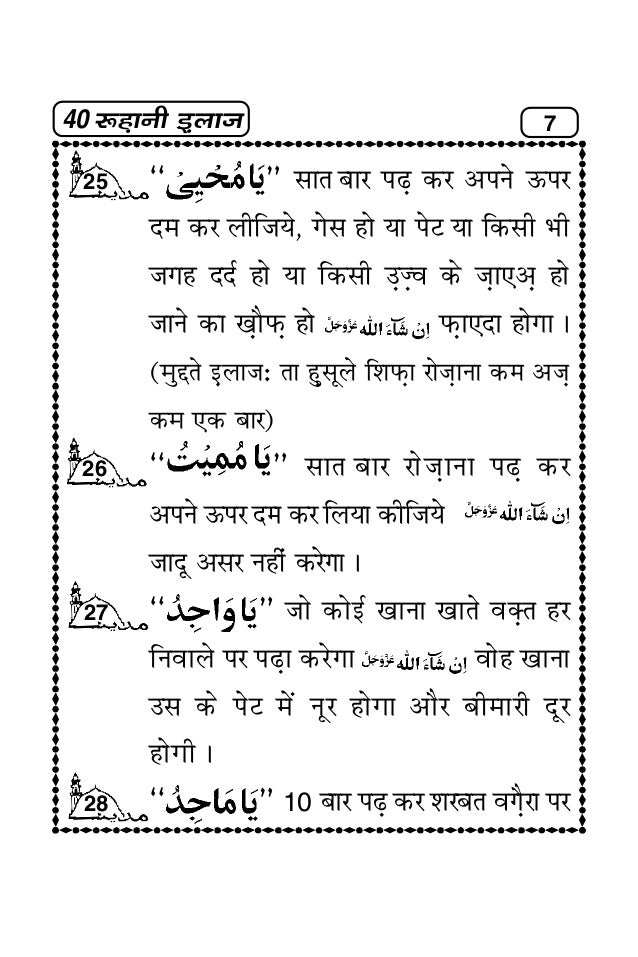 40 रूहानी इलाज
7
25 “يَا مُحْيِىْ” सात बार पढ़ कर अपने ऊपर
दम कर लीजिये, गेस हो या पेट या किसी भी
जगह दर्द हो या किसी उ़ज़्व के ज़ाएअ़ हो
जाने का ख़ौफ़ हो اِنْ شَآءَ اللّٰه عَزَّوَجَلَّ फ़ाएदा होगा ।
(मुद्दते इलाज: ता हुसूले शिफ़ा रोज़ाना कम अज़
कम एक बार)
26 “يَا مُمِيْتُ” सात बार रोज़ाना पढ़ कर
अपने ऊपर दम कर लिया कीजिये اِنْ شَآءَ اللّٰه عَزَّوَجَلَّ
जादू असर नहीं करेगा ।
27 “يَا وَاجِدُ” जो कोई खाना खाते वक़्त हर
निवाले पर पढ़ा करेगा اِنْ شَآءَ اللّٰه عَزَّوَجَلَّ वोह खाना
उस के पेट में नूर होगा और बीमारी दूर
होगी ।
28 “يَا مَاجِدُ” 10 बार पढ़ कर शरबत वग़ैरा पर